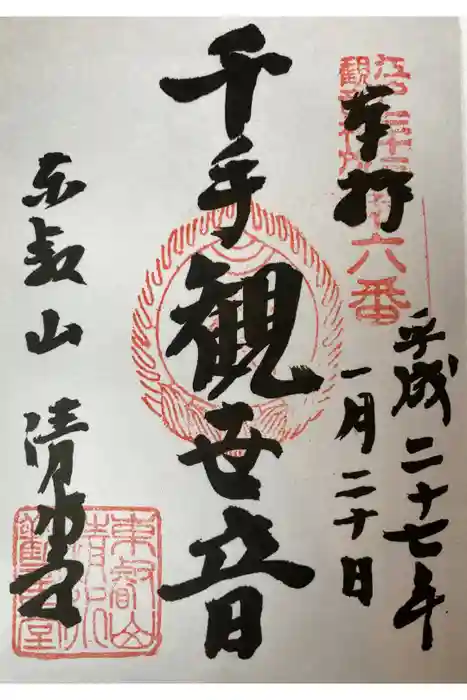 奉拝
江戸三十三
観音札所
第六番
平成二十七年
一月二十日
千手観世音
東叡山 清水堂
東叡山
清水
観音堂